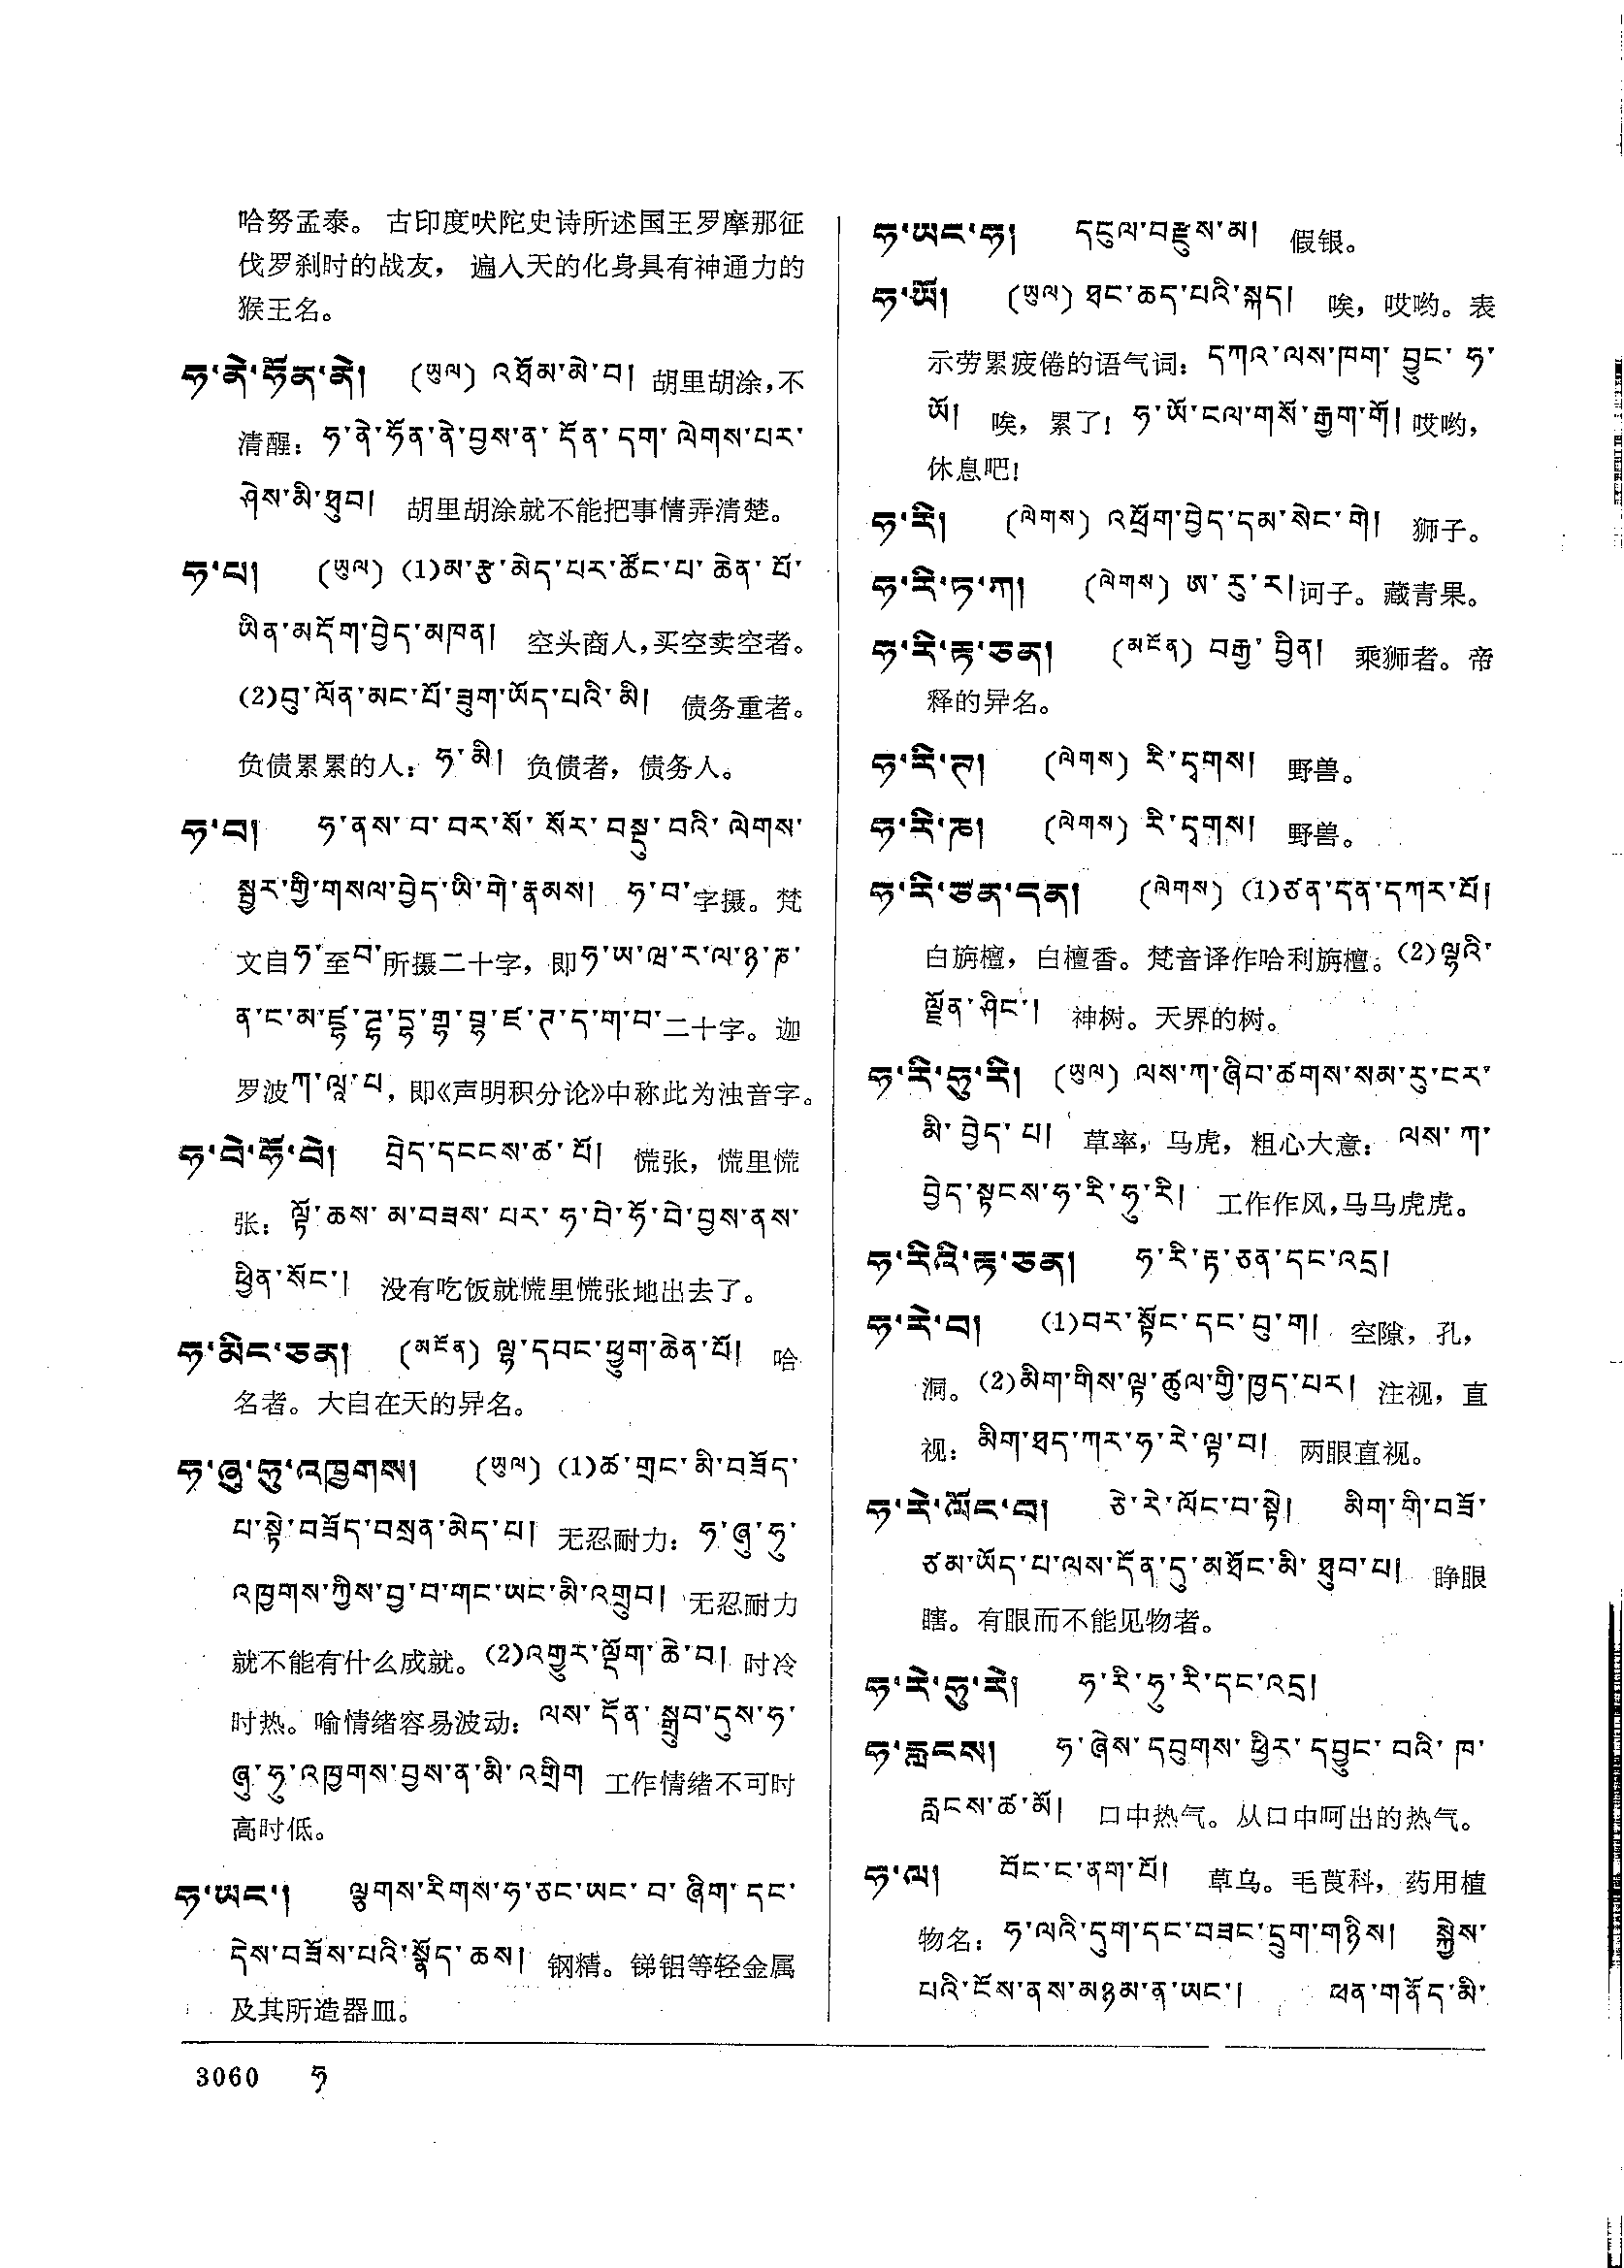 哈努孟泰。 古印度吠陀史诗所述国王罗摩那征
伐罗刹时的战友， 遍入天的化身具有神通力的
猴王名。
ཧ་ནེ་ཧོན་ནེ། (ཡུལ) འཐོམ་མེ་བ། 胡里胡涂,不
清醒： ཧ་ནེ་ཧོན་ནེ་བྱས་ན་ དོན་ དག་ ལེགས་པར་
ཤེས་མི་ཐུབ། 胡里胡涂就不能把事情弄清楚。
ཧ་པ། (ཡུལ) (1)མ་རྩ་མེད་པར་ཚོང་པ་ ཆེན་ པོ་
ཡིན་མདོག་བྱེད་མཁན། 空头商人,买空卖空者。
(2)བུ་ལོན་མང་པོ་ཟུག་ཡོད་པའི་མི། 债务重者。
负债累累的人： ཧ་མི། 负债者，债务人。
ཧ་བ། ཧ་ནས་ བ་ བར་སོ་ སོར་ བསྡུ་བའི་ ལེགས་
སྦྱར་གྱི་གསལ་བྱེད་ཡི་གེ་རྣམས། ཧ་བ་字摄。梵
文自ཧ་至བ་所摄二十字，即ཧ་ཡ་ཝ་ར་ལ་ཉ་ཎ་
ན་ང་མ་ཛྷ་ཌྷ་དྷ་གྷ་བྷ་ཛ་ཌ་ད་ག་བ་二十字。迦
罗波ཀ་ལཱ་པ，即《声明积分论》中称此为浊音字。
ཧ་བེ་ཧོ་བེ། བྲེད་དངངས་ཚ་ པོ། 慌张，慌里慌
张： ལྟོ་ཆས་ མ་བཟས་ པར་ ཧ་བེ་ཧོ་བེ་བྱས་ནས་
ཕྱིན་སོང་། 没有吃饭就慌里慌张地出去了。
ཧ་མིང་ཅན། (མངོན) ལྷ་དབང་ཕྱུག་ཆེན་པོ། 哈
名者。大自在天的异名。
ཧ་ཞུ་ཧུ་འཁྱགས། (ཡུལ) (1)ཚ་གྲང་མི་བཟོད་
པ་སྟེ་བཟོད་བསྲན་མེད་པ། 无忍耐力： ཧ་ཞུ་ཧུ་
འཁྱགས་ཀྱིས་བྱ་བ་གང་ཡང་མི་འགྲུབ། 无忍耐力
就不能有什么成就。(2)འགྱུར་ལྡོག་ཆེ་བ། 时冷
时热。喻情绪容易波动： ལས་ དོན་ སྒྲུབ་དུས་ཧ་
ཞུ་ཧུ་འཁྱགས་བྱས་ན་མི་འགྲིག 工作情绪不可时
高时低。
ཧ་ཡང་། ལྕགས་རིགས་ཧ་ཅང་ཡང་ བ་ ཞིག་ དང་
དེས་བཟོས་པའི་སྣོད་ཆས། 钢精。锑铝等轻金属
及其所造器皿。
ཧ་ཡང་ཧ། དངུལ་བརྫུས་མ། 假银。
ཧ་ཡོ། (ཡུལ) ཐང་ཆད་པའི་སྐད། 唉，哎哟。表
示劳累疲倦的语气词： དཀའ་ལས་ཁག་ བྱུང་ ཧ་
ཡོ། 唉，累了！ ཧ་ཡོ་ངལ་གསོ་རྒྱག་གོ། 哎哟，
休息吧！
ཧ་རི། (ལེགས) འཕྲོག་བྱེད་དམ་སེང་གེ། 狮子。
ཧ་རི་ཏ་ཀ། (ལེགས) ཨ་ རུ་ ར། 诃子。藏青果。
ཧ་རི་རྟ་ཅན། (མངོན) བརྒྱ་ བྱིན། 乘狮者。帝
释的异名。
ཧ་རི་ཌ། (ལེགས) རི་དྭགས། 野兽。
ཧ་རི་ཎ། (ལེགས) རི་དྭགས། 野兽。
ཧ་རི་ཙན་དན། (ལེགས) (1)ཙན་དན་དཀར་པོ།
白旃檀，白檀香。梵音译作哈利旃檀。(2)ལྷའི་
ལྗོན་ཤིང་། 神树。天界的树。
ཧ་རི་ཧུ་རི། (ཡུལ) ལས་ཀ་ཞིབ་ཚགས་སམ་རུ་ངར་
མི་ བྱེད་ པ། 草率，马虎，粗心大意： ལས་ ཀ་
བྱེད་སྟངས་ཧ་རི་ཧུ་རི། 工作作风,马马虎虎。
ཧ་རིའི་རྟ་ཅན། ཧ་རི་རྟ་ཅན་དང་འདྲ།
ཧ་རེ་བ། (1)བར་སྟོང་དང་བུ་ག། 空隙，孔，
洞。(2)མིག་གིས་ལྟ་ཚུལ་གྱི་ཁྱད་པར། 注视，直
视： མིག་ཐད་ཀར་ཧ་རེ་ལྟ་བ། 两眼直视。
ཧ་རེ་ལོང་བ། ཅེ་རེ་ལོང་བ་སྟེ། མིག་གི་བཟོ་
ཙམ་ཡོད་པ་ལས་དོན་དུ་མཐོང་མི་ ཐུབ་པ། 睁眼
瞎。有眼而不能见物者。
ཧ་རེ་ཧུ་རེ། ཧ་རི་ཧུ་རི་དང་འདྲ།
ཧ་རླངས། ཧ་ཞེས་ དབུགས་ ཕྱིར་ དབྱུང་ བའི་ ཁ་
རླངས་ཚ་མོ། 口中热气。从口中呵出的热气。
ཧ་ལ། བོང་ང་ནག་པོ། 草乌。毛茛科，药用植
物名： ཧ་ལའི་དུག་དང་བཟང་དྲུག་གཉིས། སྐྱེས་
པའི་ངོས་ནས་མཉམ་ན་ཡང་། ཕན་གནོད་མི་
3060 ཧ